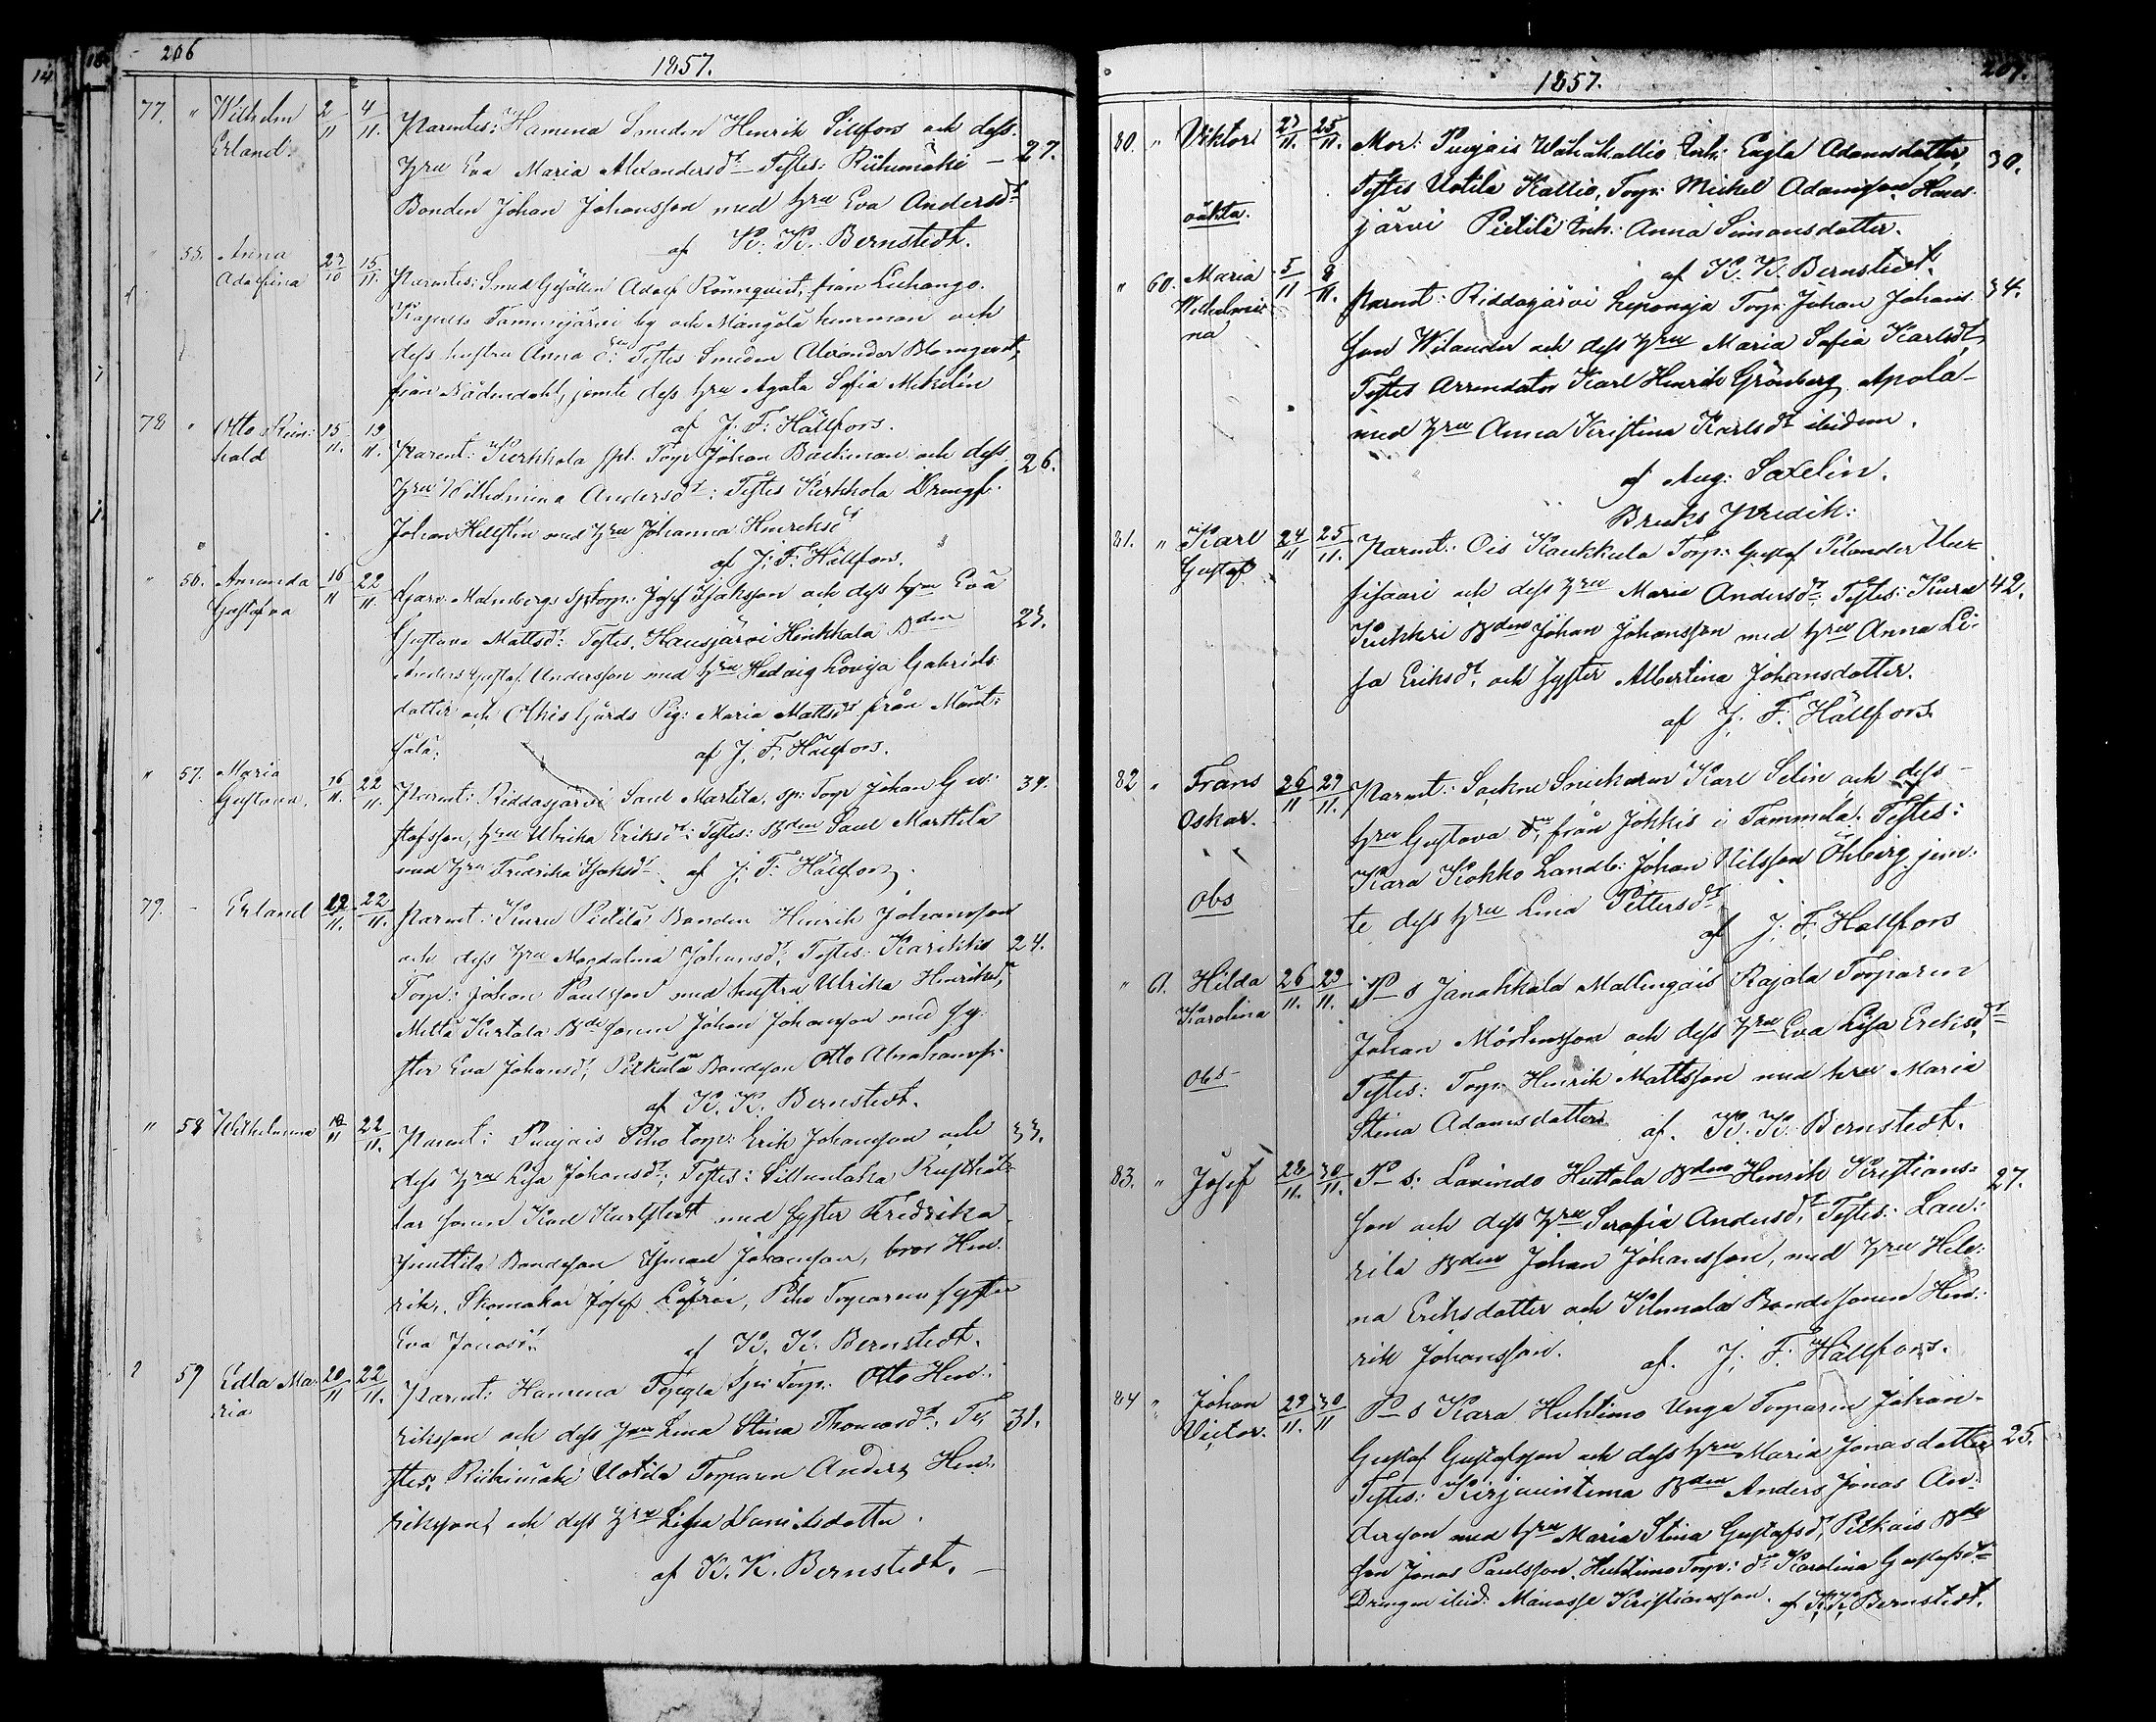 206
1857.
77. " Wilhelm 2/11 4/11. Parentes: Hamina Smeden Henrik Sillfors och dess
Erland. hru Eva Maria Alexandersdr Testes: Riihimäki — 27.
Bonden Johan Johansson med hru Eva Andersdr
af K. K. Bernstedt.
" 55. Anna 27/10 15/11. Parentes: Smed Gesällen Adolf Rönnqvist, från Luhango
Adolfina
Kapells Tammijärvi by och Mangola hemman och
dess hustru Anna Testes Smeden Alexander Blomqvist,
från Nådendahl, jemte dess hru Agata Sofia Mikelin
af J. F. Hällfors.
78 " Otto Rein- 15/11. 19/11. Parent: Kerkkola Torp Johan Backman och dess 26.
hold hru Wilhelmina Andersdr: Testes Kerkkola Drengf.
Johan Hellstén med hru Johanna Henriksdr
af J. F. Hällfors.
" 56. Amanda 16/11 22/11. Malmbergs Torp: Josef Isaksson och dess hru Eva
Gustafva Gustava Mattsdr: Testes, Hausjärvi Hinkkala Bden 23.
Anders Gustaf Andersson med hru Hedvig Lovisa Gabriels
dotter och Olhis Gårds Pig: Maria Mattsdr från Mänt-
sälä; af J. F. Hällfors.
" 57. Maria 16/11. 22/11. Parent: Riddasjärvi Saul Marttila, sp: Torp Johan Gu- 39.
Gustava. stafsson, hru Ulrika Eriksdr: Testes: Bden Saul Marttila
med hru Fredrika Isaksdr af J. F. Hällfors.
79. - Erland 19/11. 22/11. Parent: Kuru Pietilä Bonden Henrik Johansson
och dess hru Magdalena Johansdr: Testes: Karikkis 24.
Torp: Johan Paulsson med hustru Ulrika Henriksdr,
Mella Kurtala Bdesonen Johan Johansson med sy-
ster Eva Johansdr, Pitkälä Bondeson Otto Abrahamss:
af K. K. Bernstedt.
" 58 Wilhelmina 19/11 22/11. Parent: Puujais Piho torp: Erik Johansson och 33.
dess hru Lisa Johansdr; Testes: Sillanlaka Rusthål-
lar sonen Karl Karlstedt med syster Fredrika
Junttila Bondeson Johansson, bror Hen-
rik, Skomakar Josef Löfroi, Piho Torparens syster
Eva Jonasdr. af K. K. Bernstedt.
59 Edla Ma- 20/11 22/11. Parent: Hamina Spi: Torp. Otto Hen-
ria rikson och dess hru Lena Stina Thomasdr. Te- 31.
stes: Riihimäki Uotila Torparen Anders Hen-
rikson, och dess hru Lisa Danielsdotter.
af K. K. Bernstedt. —
1857. 207.
80. " Viktor 23/11. 25/11. Mor: Puujais Wähäkallio Inh: Eagla Adamsdotter, 30.
Testes Uotila Kallio, Torp: Michel Adamsson, Haus-
oäkta. järvi Pietilä Inh: Anna Simonsdotter.
af K. K. Bernstedt.
" 60. Maria 5/11 8/11. Parent: Riddasjärvi Leponoja Torp: Johan Johans- 34.
Wilhelmi- son Wilander och dess hru Maria Sofia Karlsdr,
na Testes Arrendator Karl Henrik Grönberg Apola
med hru Anna Kristina Karlsdr ibidem.
af Aug: Saxelin.
Bruks Predik:
81. " Karl 24/11 25/11. Parent: Ois Kaukkula Torp: Gustaf Pilander Uur-
Gustaf sisaari och dess hru Maria Andersdr Testes: Kara 42.
Kukkri Bden Johan Johansson med hru Anna Li-
sa Eriksdr, och syster Albertina Johansdotter.
af J. F. Hällfors.
82 " Frans 26/11 29/11. Parent: Sackne Snickaren Karl Selin och dess
Oskar. hru Gustava, från Jokkis i Tammela. Testes:
Kara Kokko Landb: Johan Nilsson Öhberg jem-
obs te dess hru Lena Pettersdr
af J. F. Hällfors
" 61. Hilda 26/11. 29/11. P—s Janakkala Mallingais Rajala Torparen
Karolina Johan Mårtensson och dess hru Eva Lisa Eriksdr
obs Testes: Torp: Henrik Mattsson med hru Maria
Stina Adamsdotter af. K. K. Bernstedt.
83. " Josef 28/11. 30/11. P—s: Lavindo Huttala Bden Henrik Kristians- 27.
son och dess hru Serafia Andersdr, Testes: Lau-
rila Bden Johan Johansson, med hru Hele-
na Eriksdotter och Kilmala Bondesonen Hen-
rik Johansson. af. J. F. Hällfors.
84 " Johan 29/11. 30/11 P—s Kara Huhtimo Unga Torparen Johan
Victor. Gustaf Gustafsson och dess hru Maria Jonasdotter 25.
Testes: Kirjavintima Bden Anders Jonas An-
dersson med hru Maria Stina Gustafsdr, Pitkäis Bde
son Jonas Paulsson, Huhtimo Torp: dr Karolina Gustafsdr
Drengen ibid: Manasse Kristiansson. af K. K. Bernstedt.